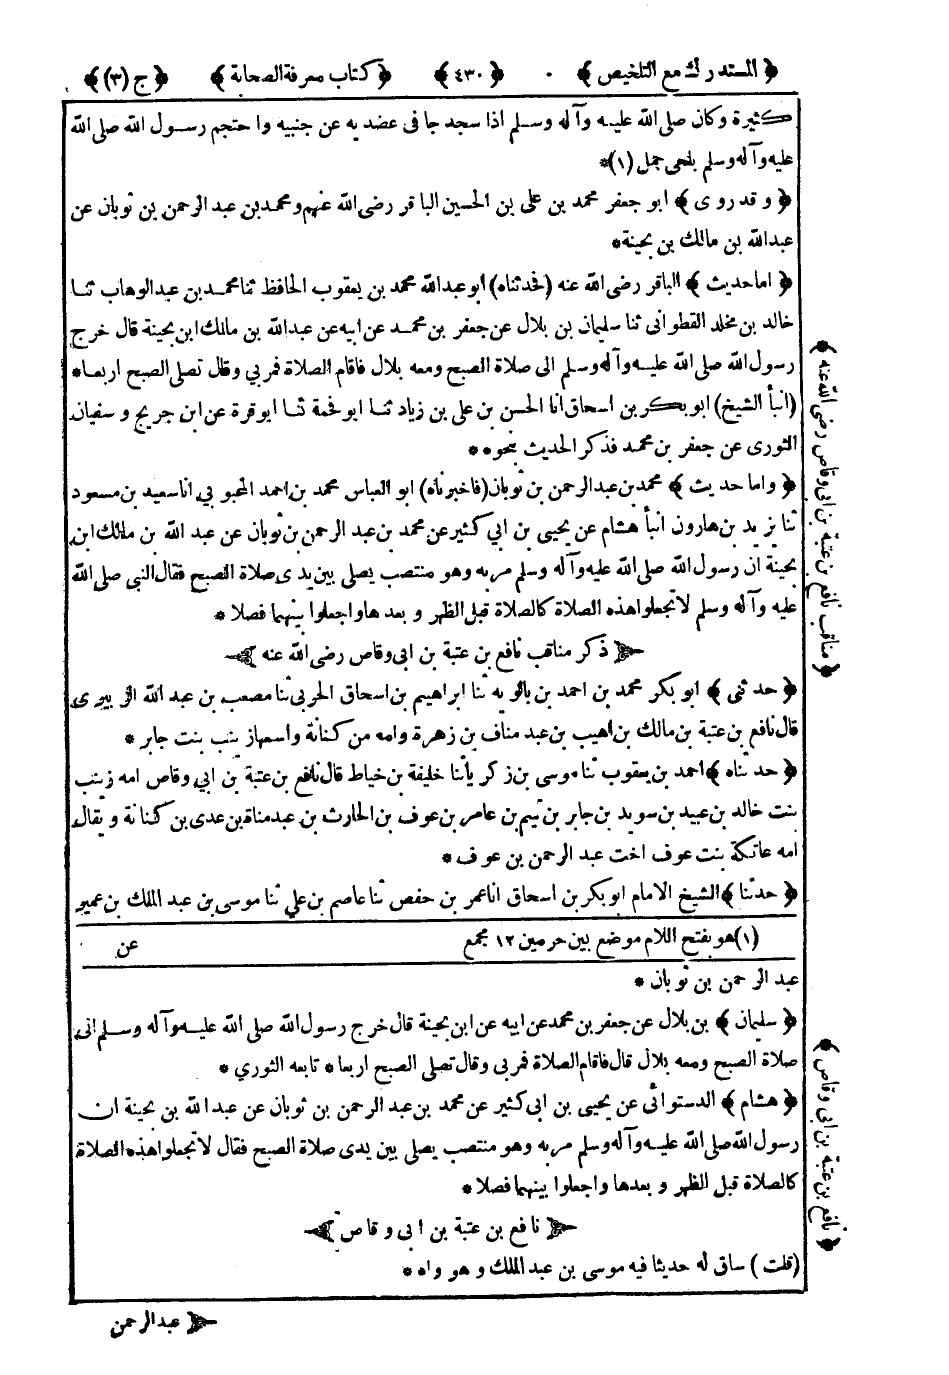 ﴿ المستدرك مع التلخيص ﴾ ﴿ ٤٣٠ ﴾ ﴿ كتاب معرفة الصحابة ﴾ ﴿ ج (٣) ﴾
كثيرة وكان صلى الله عليه وآله وسلم اذا سجد جافى عضديه عن جنبيه واحتجم رسول الله صلى الله
عليه وآله وسلم بلحى جمل (١)*
﴿ وقد روى ﴾ ابو جعفر محمد بن على بن الحسين الباقر رضى الله عنهم ومحمد بن عبد الرحمن بن ثوبان عن
عبد الله بن مالك بن بحينة*
﴿ اما حديث ﴾ الباقر رضى الله عنه (فحدثناه) ابو عبد الله محمد بن يعقوب الحافظ ثنا محمد بن عبد الوهاب ثنا
خالد بن مخلد القطوانى ثنا سليمان بن بلال عن جعفر بن محمد عن ابيه عن عبد الله بن مالك ابن بحينة قال خرج
رسول الله صلى الله عليه وآله وسلم الى صلاة الصبح ومعه بلال فاقام الصلاة فمر بي وقال تصلى الصبح اربعا*
(انبأ الشيخ) ابو بكر بن اسحاق انا الحسن بن على بن زياد ثنا ابو حمة ثنا ابو قرة عن ابن جريج وسفيان
الثورى عن جعفر بن محمد فذكر الحديث بنحوه**
﴿ واما حديث ﴾ محمد بن عبد الرحمن بن ثوبان (فاخبرناه) ابو العباس محمد بن احمد المحبوبي انا سعيد بن مسعود
ثنا يزيد بن هارون انبأ هشام عن يحيى بن ابي كثير عن محمد بن عبد الرحمن بن ثوبان عن عبد الله بن مالك ابن
بحينة ان رسول الله صلى الله عليه وآله وسلم مر به وهو منتصب يصلى بين يدى صلاة الصبح فقال النبي صلى الله
عليه وآله وسلم لا تجعلوا هذه الصلاة كالصلاة قبل الظهر وبعدها واجعلوا بينهما فصلا*
ذكر مناقب نافع بن عتبة بن ابى وقاص رضى الله عنه
﴿ حدثنى ﴾ ابو بكر محمد بن احمد بن بالويه ثنا ابراهيم بن اسحاق الحربى ثنا مصعب بن عبد الله الزبيرى
قال نافع بن عتبة بن مالك بن اهيب بن عبد مناف بن زهرة وامه من كنانة واسمها زينب بنت جابر*
﴿ حدثناه ﴾ احمد بن يعقوب ثنا موسى بن زكريا ثنا خليفة بن خياط قال نافع بن عتبة بن ابي وقاص امه زينب
بنت خالد بن عبيد بن سويد بن جابر بن تيم بن عامر بن عوف بن الحارث بن عبد مناة بن عدى بن كنانة ويقال
امه عاتكة بنت عوف اخت عبد الرحمن بن عوف*
﴿ حدثنا ﴾ الشيخ الامام ابو بكر بن اسحاق انا عمر بن حفص ثنا عاصم بن علي ثنا موسى بن عبد الملك بن عمير
(١) هو بفتح اللام موضع بين حرمين ١٢ مجمع
عن
عبد الرحمن بن ثوبان*
﴿ سليمان ﴾ بن بلال عن جعفر بن محمد عن ابيه عن ابن بحينة قال خرج رسول الله صلى الله عليه وآله وسلم الى
صلاة الصبح ومعه بلال قال فاقام الصلاة فمر بى وقال تصلى الصبح اربعا* تابعه الثوري*
﴿ هشام ﴾ الدستوائى عن يحيى بن ابى كثير عن محمد بن عبد الرحمن بن ثوبان عن عبد الله بن بحينة ان
رسول الله صلى الله عليه وآله وسلم مر به وهو منتصب يصلى بين يدى صلاة الصبح فقال لا تجعلوا هذه الصلاة
كالصلاة قبل الظهر وبعدها واجعلوا بينهما فصلا*
نافع بن عتبة بن ابى وقاص
(قلت) ساق له حديثا فيه موسى بن عبد الملك وهو واه*
عبد الرحمن
﴿ مناقب نافع بن عتبة بن ابى وقاص رضى الله عنه ﴾
﴿ نافع بن عتبة بن ابى وقاص ﴾